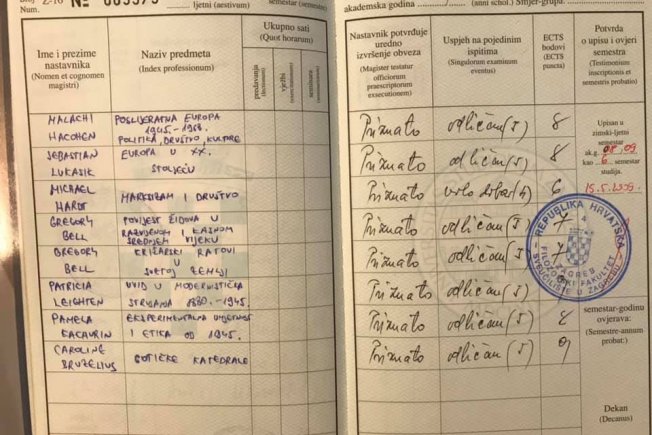 Num. Z-16 № 003373 ljetni (aestivum) semestar (semestre)
Ime i prezime
nastavnika
(Nomen et cognomen
magistri)
Naziv predmeta
(Index professionum)
Ukupno sati
(Quot horarum)
predavanja
vježbi
seminara
MALACHI
HACOHEN
POSLIJERATNA EUROPA
1945.-1968.
POLITIKA, DRUŠTVO, KULTURE
SEBASTIAN
LUKASIK
EUROPA U XX.
STOLJEĆU
MICHAEL
HARDT
MARKSIZAM I DRUŠTVO
GREGORY
BELL
POVIJEST ŽIDOVA U
RAZVIJENOM I KASNOM
SREDNJEM VIJEKU
GREGORY
BELL
KRIŽARSKI RATOVI
U
SVETOJ ZEMLJI
PATRICIA
LEIGHTEN
UVID U MODERNISTIČKA
STRUJANJA 1880.-1945.
PAMELA
KACHURIN
EKSPERIMENTALNA UMJETNOST
I ETIKA OD 1945.
CAROLINE
BRUZELIUS
GOTIČKE KATEDRALE
akademska godina (anni schol.) Smjer-grupa:
Nastavnik potvrđuje
uredno
izvršenje obveza
(Magister testatur
officiorum
praescriptorum
exsecutionem)
Uspjeh na pojedinim
ispitima
(Singulorum examinum
eventus)
ECTS
bodovi
(ECTS
puncta)
Potvrda
o upisu i ovjeri
semestra
(Testimonium
inscriptionis et
semestris probatio)
Priznato odličan (5) 8
Priznato odličan (5) 8
Priznato vrlo dobar (4) 6
Priznato odličan (5) 7
Priznato odličan (5) 7
Priznato odličan (5)
Priznato odličan (5) 8
Priznato odličan (5) 9
Upisan u
zimski-ljetni
semestar
ak.g. 08/09
kao 6 semestar
studija.
15.5.2009
REPUBLIKA HRVATSKA
4
ZAGREB
FILOZOFSKI FAKULTET
SVEUČILIŠTE U ZAGREBU
semestar-godinu
ovjerava:
(Semestre-annum
probat:)
Dekan
(Decanus)